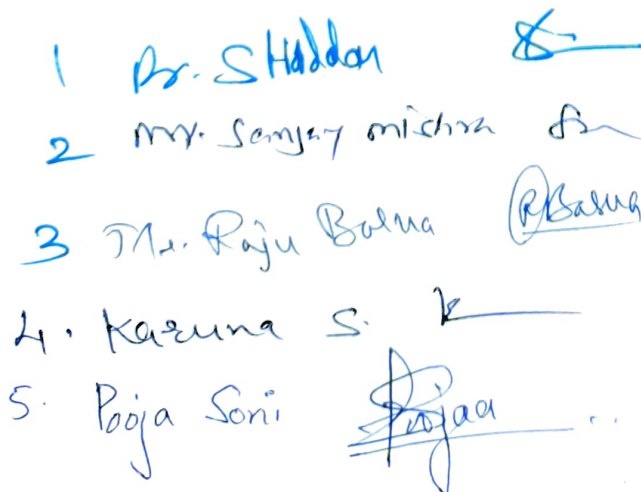 1 Dr. S Haddon
2 Mr. Sanjay mishra
3 Mr. Raju Basua R Basua
4. Karuna S. K
5. Pooja Soni Poojaa